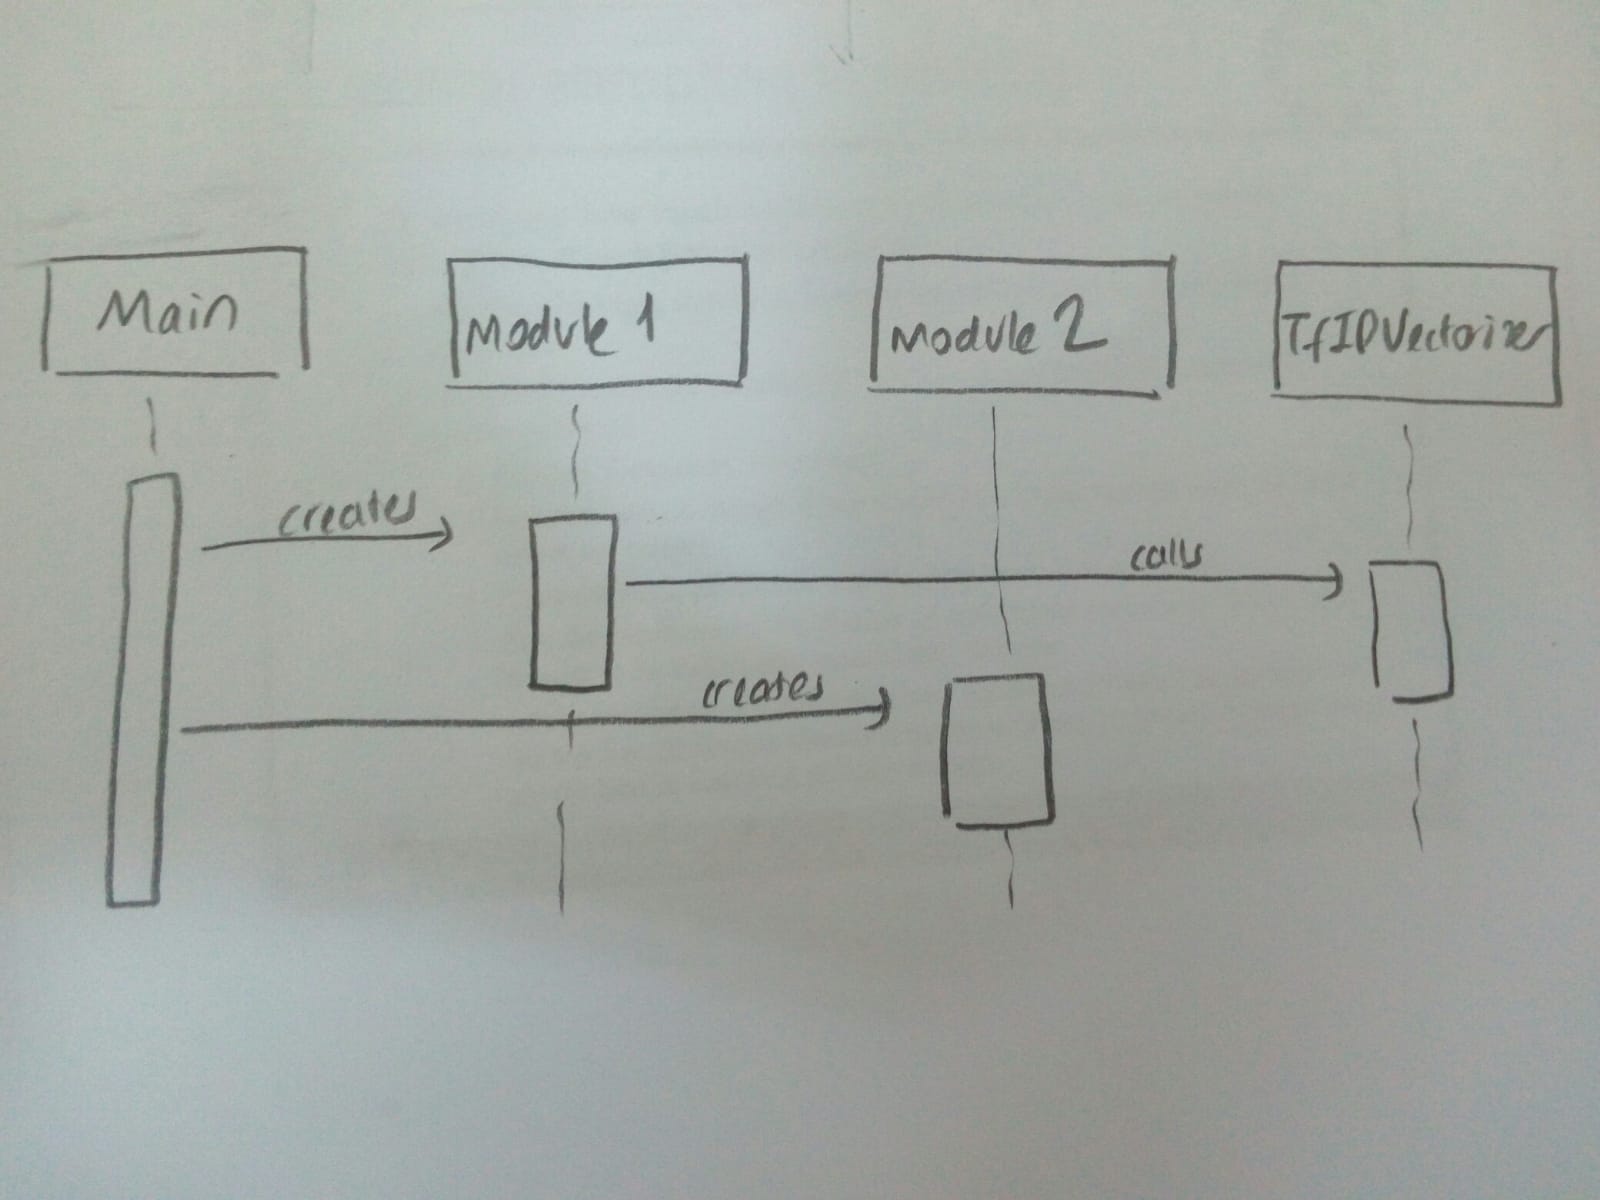 Main
Module 1
Module 2
TfIDVectorizer
creates
calls
creates